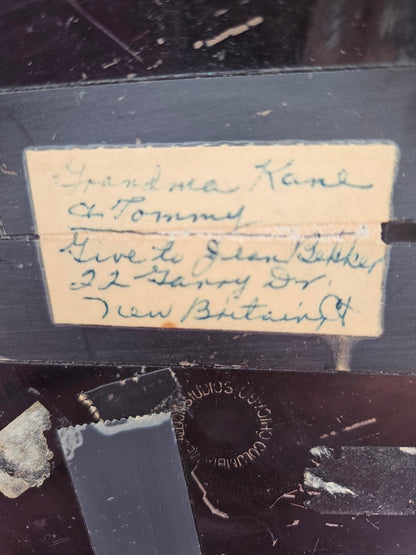 Grandma Kane
& Tommy
Give to Jean Gekker
22 Garry Dr.
New Britain, Ct
STUDIOS